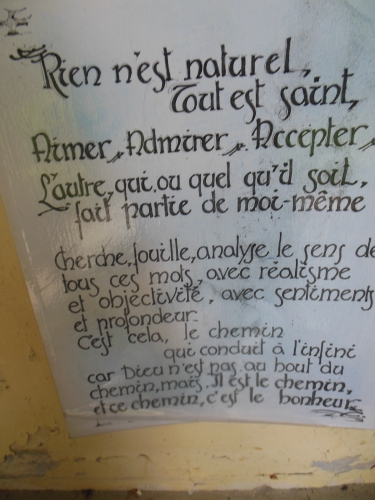 Rien n'est naturel,
Tout est saint,
Aimer, Admirer, Accepter,
L'autre, qui, ou quel qu'il soit,
fait partie de moi-même
Cherche, fouille, analyse le sens de
tous ces mots, avec réalisme
et objectivité, avec sentiments
et profondeur.
C'est cela, le chemin
qui conduit à l'infini
car Dieu n'est pas au bout du
chemin, mais. Il est le chemin,
et ce chemin, c'est le bonheur